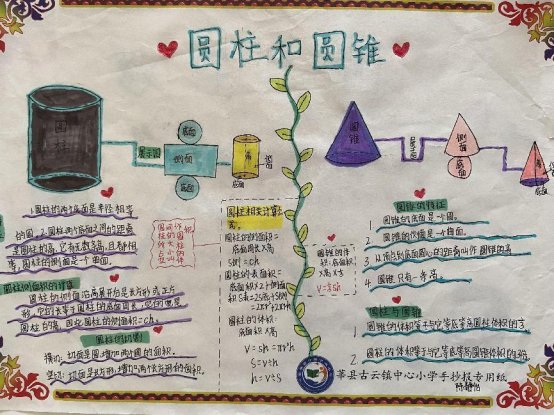 圆柱和圆锥
圆柱
展开图
侧面
底面
底面
高
底面
圆锥
展开图
侧面
底面
底面
1.圆柱的两个底面是半径相等
的圆。2.圆柱两个底面之间的距离
是圆柱的高，它有无数条高，且都相
等，圆柱的侧面是个曲面。
圆柱侧面积的计算
圆柱的侧面沿高展开后是长方形或正方
形，它的长等于圆柱的底面周长，它的宽是
圆柱的高，因此圆柱的侧面积=ch。
圆柱的切割
横切：切面是圆，增加两个圆的面积。
竖切：切面是长方形，增加两个长方形的面积。
圆柱相关计算公式
圆柱的侧面积=
底面周长×高
S侧=ch
圆柱的表面积=
底面积×2+侧面积
圆柱的体积=
底面积×高
V=sh=πr²h
S=V÷h
h=V÷S
圆锥的体
积=底面积
×高×⅓
V=⅓Sh
圆锥的特征
1 圆锥的底面是一个圆。
2 圆锥的侧面是一个曲面。
3 从顶点到底面圆心的距离叫作圆锥的高
4 圆锥只有一条高
圆柱与圆锥
圆锥的体积等于与它等底等高圆柱体积的⅓。
圆柱的体积等于与它等底等高圆锥体积的3倍。
莘县古云镇中心小学手抄报专用纸